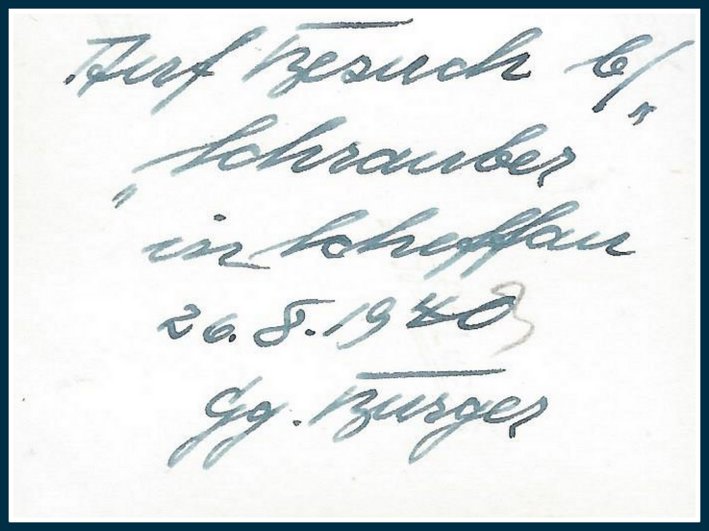 Auf Besuch b/"
"Schrauber
in Scheffau
26.8.1940
Gg. Burger